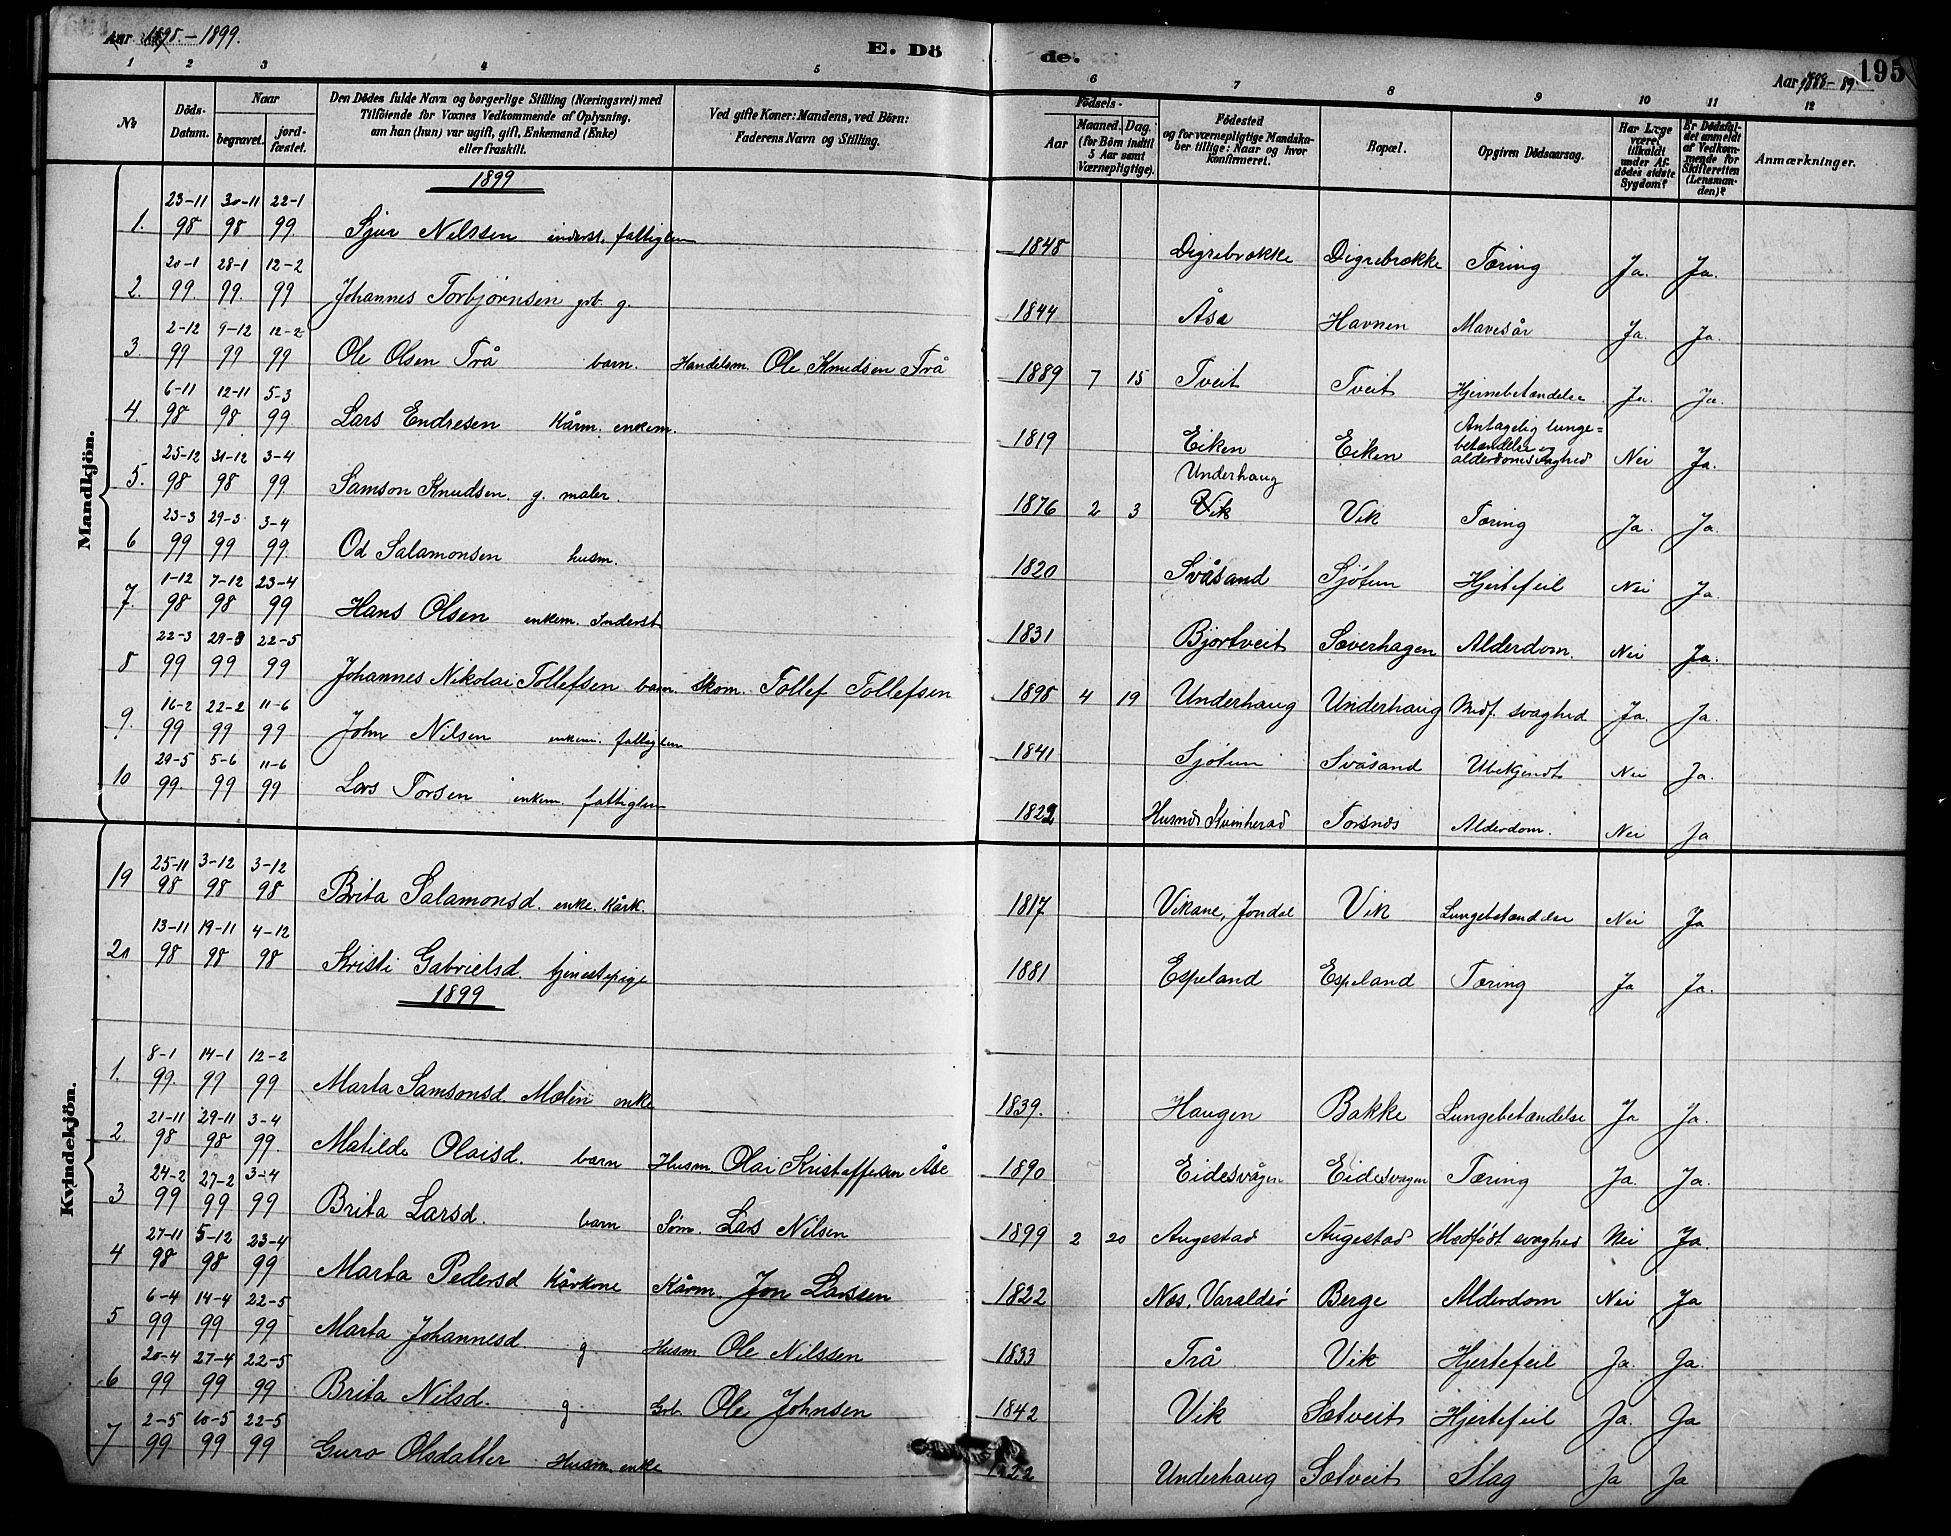 Aar 1898.-1899.
E. Döde.
Aar 1888-89 195
1 2 3 4 5 6 7 8 9 10 11 12
No. Döds-Datum. Naar begravet. jordfæstet. Den Dödes fulde Navn og borgerlige Stilling (Næringsvei) med Tilföiende for Voxnes Vedkommende af Oplysning, om han (hun) var ugift, gift, Enkemand (Enke) eller fraskilt. Ved gifte Koner: Mandens, ved Börn: Faderens Navn og Stilling. Födsels- Aar Maaned. Dag. (for Börn indtil 5 Aar samt Værnepligtige). Födested og for værnepligtige Mandskaber tillige: Naar og hvor Konfirmeret. Bopæl. Opgiven Dödsaarsag. Har Læge været tilkaldt under Afdödes sidste Sygdom? Er Dödsfaldet anmeldt af Vedkommende for Skifteretten (Lensmanden)? Anmærkninger.
Mandkjön.
1899
1. 23-11 98 30-11 98 22-1 99 Sjur Nilssen inderst. fattiglem 1848 Digrebrække Digrebrække Tæring Ja. Ja.
2. 20-1 99. 28-1 99. 12-2 99 Johannes Torbjørnsen grb. g. 1844 Åse Havnen Mavesår Ja. Ja.
3 2-12 99 9-12 99 12-2 99 Ole Olsen Trå barn. Handelsm. Ole Knudsen Trå 1889 7 15 Tveit Tveit Hjernebetændelse Ja. Ja.
4. 6-11 98 12-11 98 5-3 99 Lars Endresen Kårm. enkem. 1819 Eiken Eiken Antagelig lunge=betændelse og alderdomssvaghed Nei Ja.
5. 25-12 98 31-12 98 3-4 99. Samson Knudsen g. maler. 1876 2 3 Underhaug Vik Vik Tæring Ja. Ja.
6 23-3 99 29-3 99 3-4 99. Od Salamonsen husm. 1820 Svåsand Sjøtun Hjertefeil Nei Ja.
7. 1-12 98 7-12 98 23-4 99 Hans Olsen enkem. Inderst 1831 Bjortveit Sæverhagen Alderdom. Nei Ja.
8 22-3 99 29-3 99 22-5 99 Johannes Nikolai Tollefsen barn. Skom. Tollef Tollefsen 1898 4 19 Underhaug Underhaug Medf. svaghed Ja. Ja.
9. 16-2 99 22-2 99 11-6 99 John Nilsen enkem. fattiglem 1841 Sjøtun Svåsand Ubekjendt Nei Ja.
10 29-5 99. 5-6 99 11-6 99 Lars Torsen enkem. fattiglem 1822 Husnes Kvinherad Torsnes Alderdom. Nei Ja
Kvindekjön.
19 25-11 98 3-12 98 3-12 98 Brita Salamonsd. enke. Kårk. 1817 Vikane, Jondal Vik Lungebetændelse Nei Ja
20 13-11 98 19-11 98 4-12 98 Kristi Gabrielsd. tjenestepige 1881 Espeland Espeland Tæring Ja Ja.
1899
1. 8-1 99. 14-1 99 12-2 99 Marta Samsonsd. Mælen enke 1839. Haugen Bakke Lungebetændelse Ja Ja.
2 21-11 98 29-11 98 3-4 99. Matilde Olaisd. barn Husm. Olai Kristoffersen Åse 1890 Eidesvågen Eidesvagen Tæring Ja. Ja.
3 24-2 99 27-2 99 3-4 99 Brita Larsd. barn Søm. Lars Nilsen 1899 2 20 Augestad Augestad Medfødt svaghed Nei Ja.
4 27-11 98 5-12 98 23-4 99 Marta Pedersd Kårkone Kårm. Jon Larssen 1822 Næs, Varaldsø Berge Alderdom Nei Ja
5 6-4 99 14-4 99 22-5 99 Marta Johannesd. g Husm Ole Nilssen 1833 Trå Vik Hjertefeil Ja. Ja.
6 20-4 99 27-4 99 22-5 99 Brita Nilsd. g Grb. Ole Johnsen 1842 Vik Sætveit Hjertefeil Ja. Ja
7 2-5 99 10-5 99 22-5 99 Guro Olsdatter Husm. enke 1822 Underhaug Sætveit Slag Ja Ja